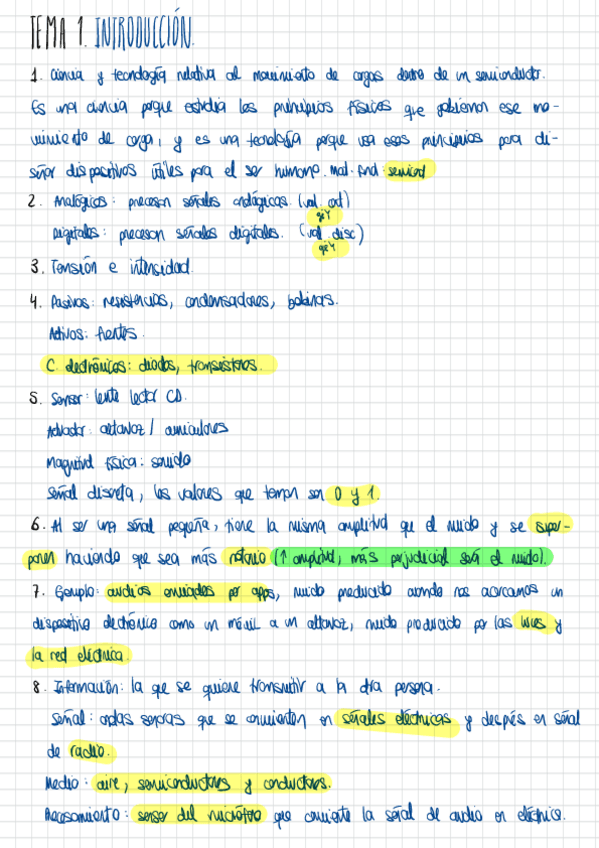 TEMA 1. INTRODUCCIÓN.
1. Ciencia y tecnología relativa al movimiento de cargas dentro de un semiconductor.
Es una ciencia porque estudia los principios físicos que gobiernan ese mo-
vimiento de carga, y es una tecnología porque usa esos principios para di-
señar dispositivos útiles para el ser humano. mat. fnd: semicond
2. Analógicos: procesan señales analógicas. (val. cot)
Digitales: procesan señales digitales. (val disc)
3. Tensión e intensidad.
4. Pasivos: resistencias, condensadores, bobinas.
Activos: fuentes.
C. electrónicos: diodos, transistores.
5. Sensor: lente lector CD.
Actuador: altavoz / auriculares
Magnitud física: sonido
Señal discreta, los valores que toman son 0 y 1.
6. Al ser una señal pequeña, tiene la misma amplitud que el ruido y se super-
ponen haciendo que sea más notorio (↑ amplitud, más perjudicial será el ruido).
7. Ejemplo: audios enviados por apps, ruido producido cuando nos acercamos un
dispositivo electrónico como un móvil a un altavoz, ruido producido por las luces y
la red eléctrica.
8. Información: la que se quiere transmitir a la otra persona.
Señal: ondas sonoras que se convierten en señales eléctricas y después en señal
de radio.
Medio: aire, semiconductores y conductores.
Procesamiento: sensor del micrófono que convierte la señal de audio en eléctrica.